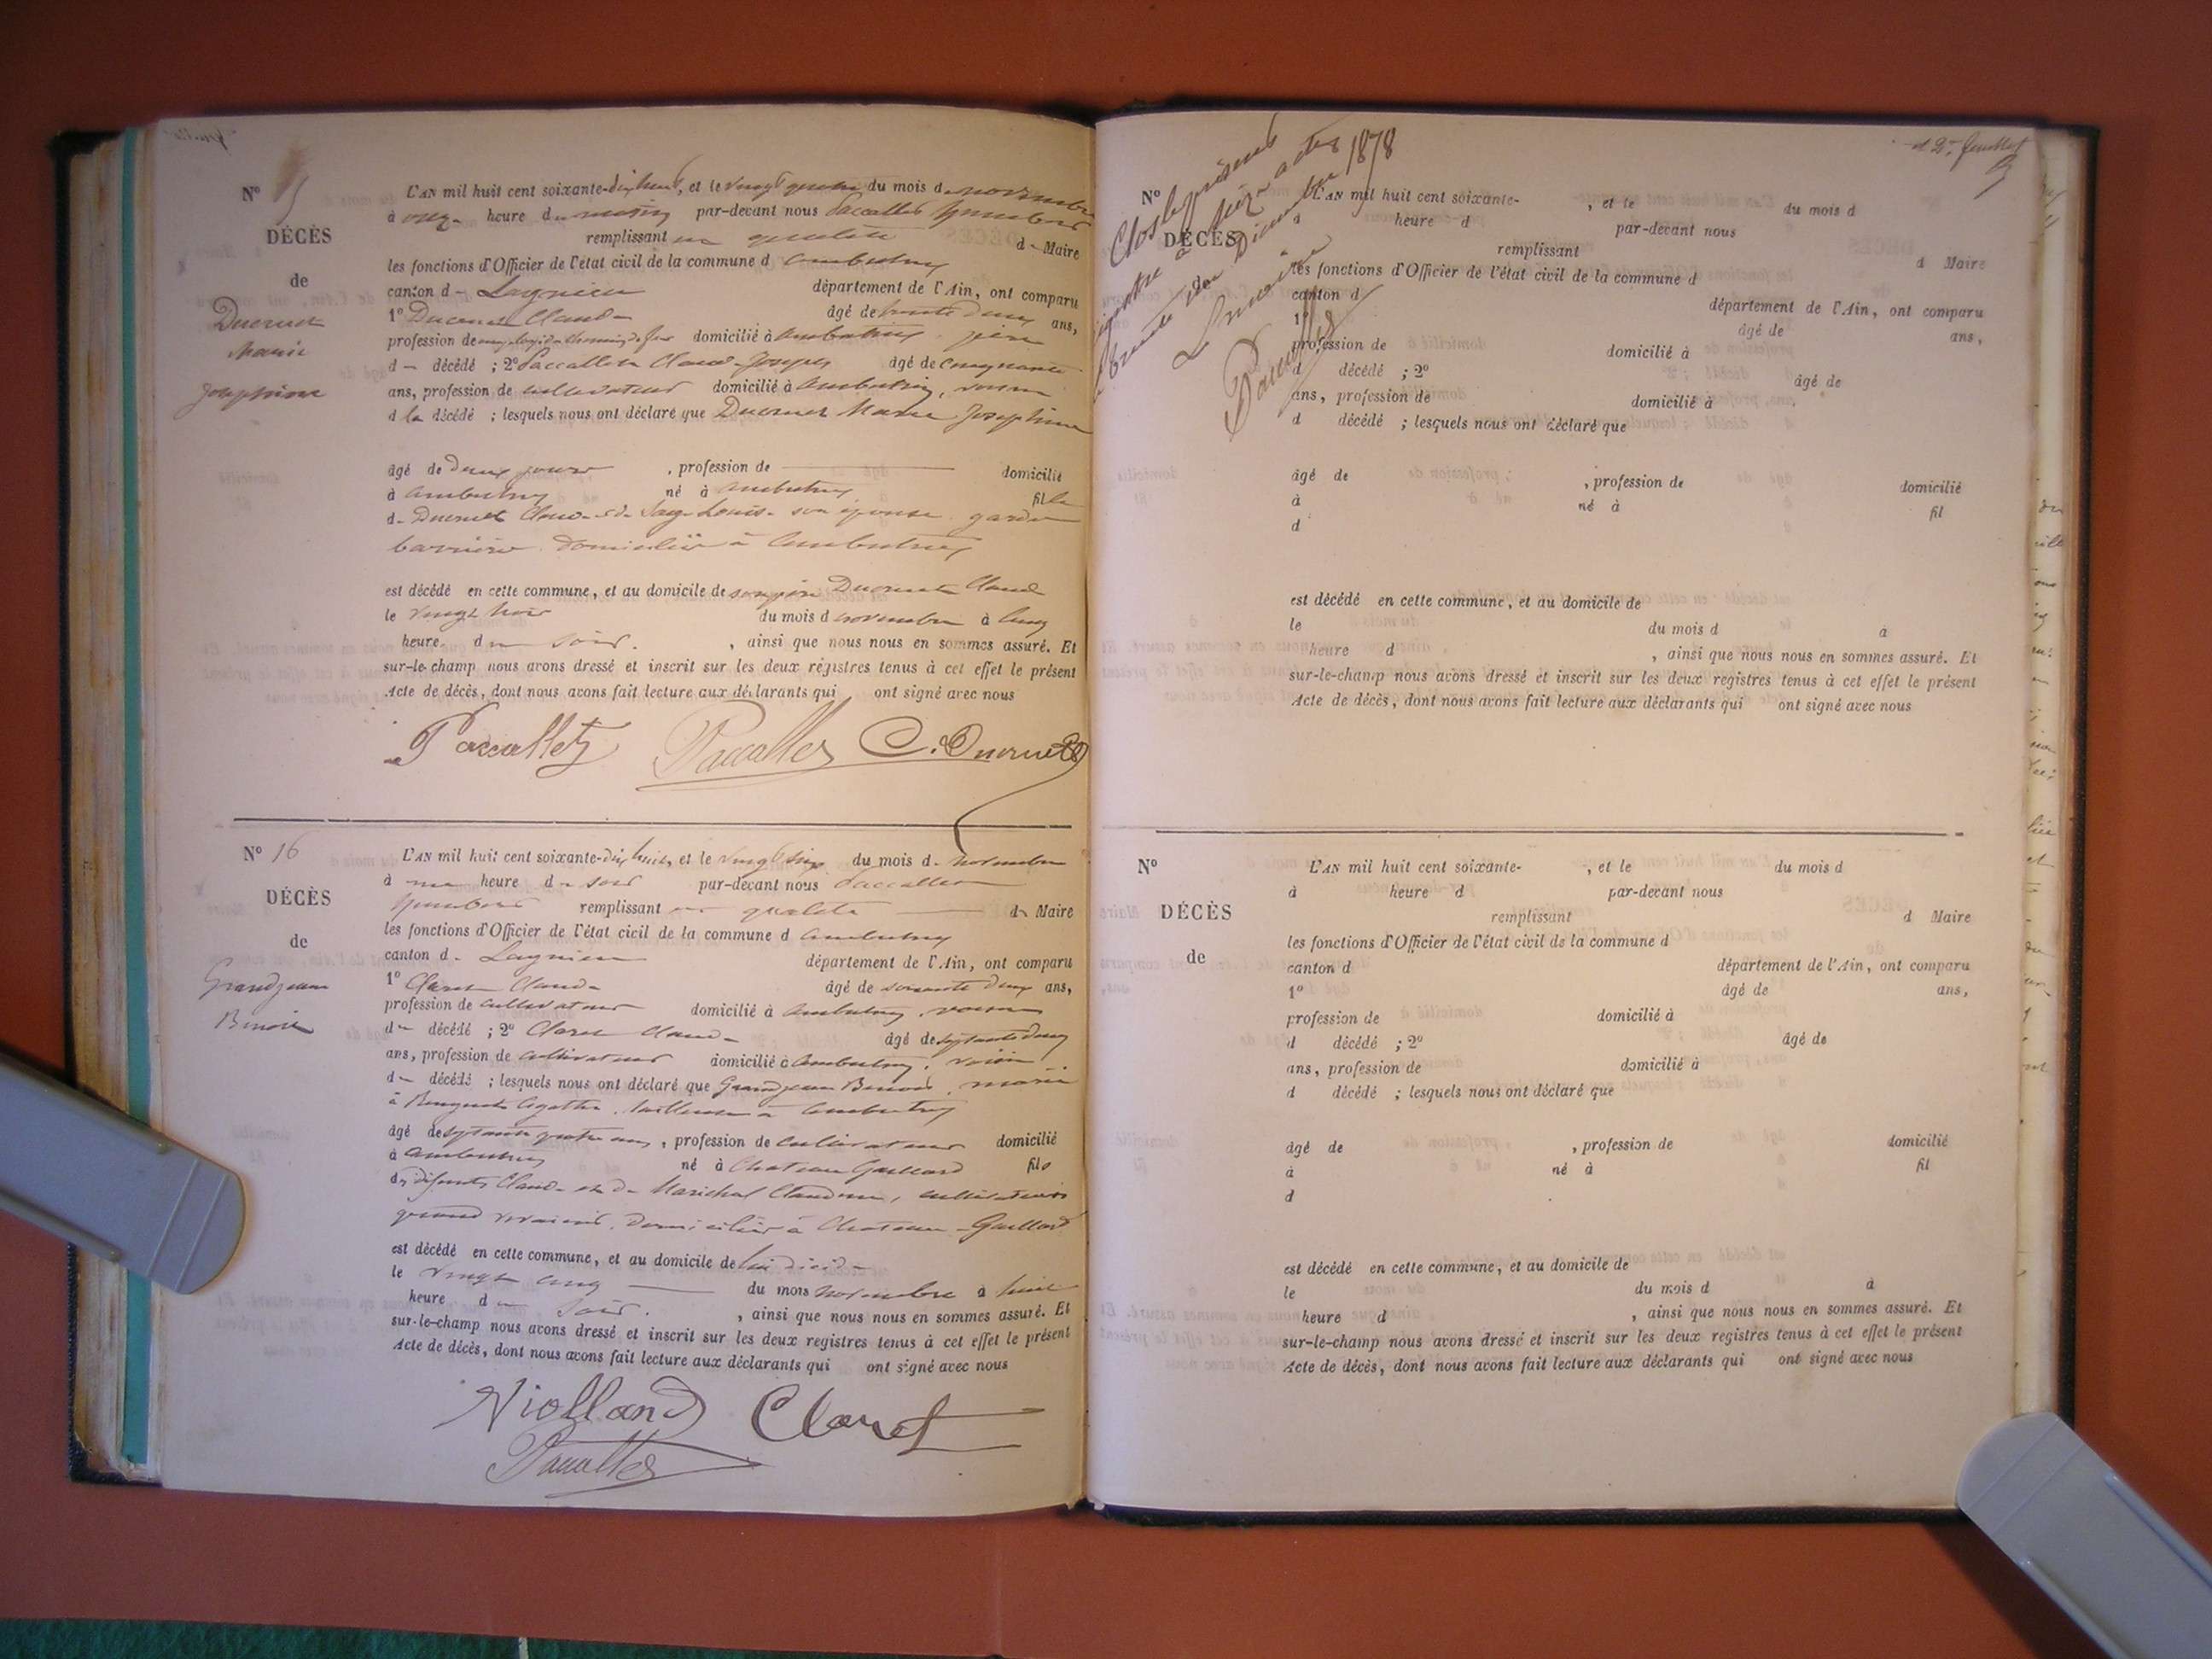 Nº 15
DÉCÈS
de
Ducruet
Marie
Josephine
L'AN mil huit cent soixante-dix huit, et le vingt quatre du mois de novembre
à onze heure du matin par-devant nous Paccallet Humbert
remplissant en qualité de Maire
les fonctions d'Officier de l'état civil de la commune d'Ambutrix
canton de Lagnieu département de l'Ain, ont comparu
1º Ducruet Claude âgé de trente deux ans,
profession de employé de chemin de fer domicilié à Ambutrix père
d décédé ; 2º Paccallet Claude Joseph âgé de cinquante
ans, profession de cultivateur domicilié à Ambutrix, voisin
de la décédé ; lesquels nous ont déclaré que Ducruet Marie Josephine
âgé de deux jours , profession de domicilié
à Ambutrix né à Ambutrix fille
de Ducruet Claude et de Louise son épouse garde
barrière domiciliés à Ambutrix
est décédé en cette commune, et au domicile de son père Ducruet Claude
le vingt trois du mois d novembre à cinq
heure du soir. , ainsi que nous nous en sommes assuré. Et
sur-le-champ nous avons dressé et inscrit sur les deux registres tenus à cet effet le présent
Acte de décès, dont nous avons fait lecture aux déclarants qui ont signé avec nous
Paccallet Paccallet C. Ducruet
Nº 16
DÉCÈS
de
Grandjean
Benoit
L'AN mil huit cent soixante-dix huit, et le vingt six du mois de novembre
à une heure du soir par-devant nous Paccallet
Humbert remplissant en qualité de Maire
les fonctions d'Officier de l'état civil de la commune d'Ambutrix
canton de Lagnieu département de l'Ain, ont comparu
1º Claret Claude âgé de soixante deux ans,
profession de cultivateur domicilié à Ambutrix, voisin
du décédé ; 2º Claret Claude âgé de septante deux
ans, profession de cultivateur domicilié à Ambutrix, voisin
du décédé ; lesquels nous ont déclaré que Grandjean Benoit, marié
à Agathe, tailleuse à Ambutrix
âgé de septante quatre ans, profession de cultivateur domicilié
à Ambutrix né à Chateau Gaillard fils
de défunts Claude et de Marichal Claudine, cultivateurs
quand vivaient, domiciliés à Chateau-Gaillard
est décédé en cette commune, et au domicile de lui décédé
le vingt cinq du mois novembre à huit
heure du soir. , ainsi que nous nous en sommes assuré. Et
sur-le-champ nous avons dressé et inscrit sur les deux registres tenus à cet effet le présent
Acte de décès, dont nous avons fait lecture aux déclarants qui ont signé avec nous
Niolland Claret
Paccallet
2e feuillet
Clos le présent
registre à seize actes
le trente un Décembre 1878
Le maire
Paccallet
Nº
DÉCÈS
L'AN mil huit cent soixante- , et le du mois d
heure d par-devant nous
remplissant d Maire
les fonctions d'Officier de l'état civil de la commune d
canton d département de l'Ain, ont comparu
1º âgé de ans,
profession de domicilié à
d décédé ; 2º âgé de
ans, profession de domicilié à
d décédé ; lesquels nous ont déclaré que
âgé de , profession de domicilié
à né à fil
d
est décédé en cette commune, et au domicile de
le du mois d a
heure d , ainsi que nous nous en sommes assuré. Et
sur-le-champ nous avons dressé et inscrit sur les deux registres tenus à cet effet le présent
Acte de décès, dont nous avons fait lecture aux déclarants qui ont signé avec nous
Nº
DÉCÈS
de
L'AN mil huit cent soixante- , et le du mois d
à heure d par-devant nous
remplissant d Maire
les fonctions d'Officier de l'état civil de la commune d
canton d département de l'Ain, ont comparu
1º âgé de ans,
profession de domicilié à
d décédé ; 2º âgé de
ans, profession de domicilié à
d décédé ; lesquels nous ont déclaré que
âgé de , profession de domicilié
à né à fil
d
est décédé en cette commune, et au domicile de
le du mois d à
heure d , ainsi que nous nous en sommes assuré. Et
sur-le-champ nous avons dressé et inscrit sur les deux registres tenus à cet effet le présent
Acte de décès, dont nous avons fait lecture aux déclarants qui ont signé avec nous